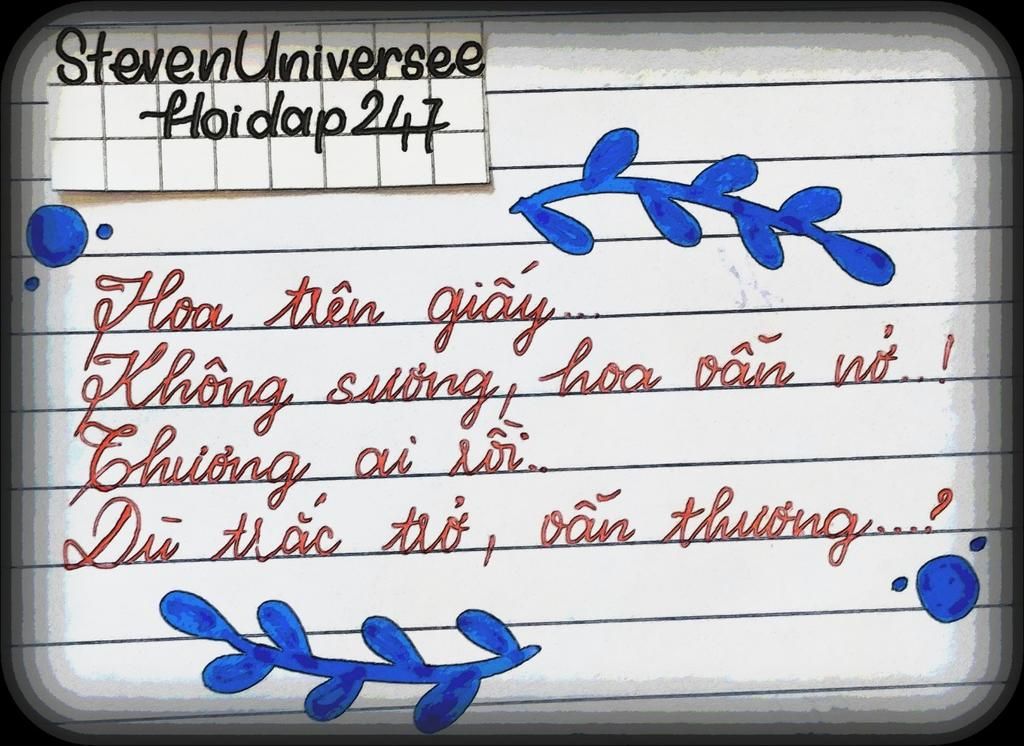 StevenUniversee
Hoidap247
Hoa trên giấy...
Không sương, hoa vẫn nở...!
Thương ai rồi..
Dù trắc trở, vẫn thương....?